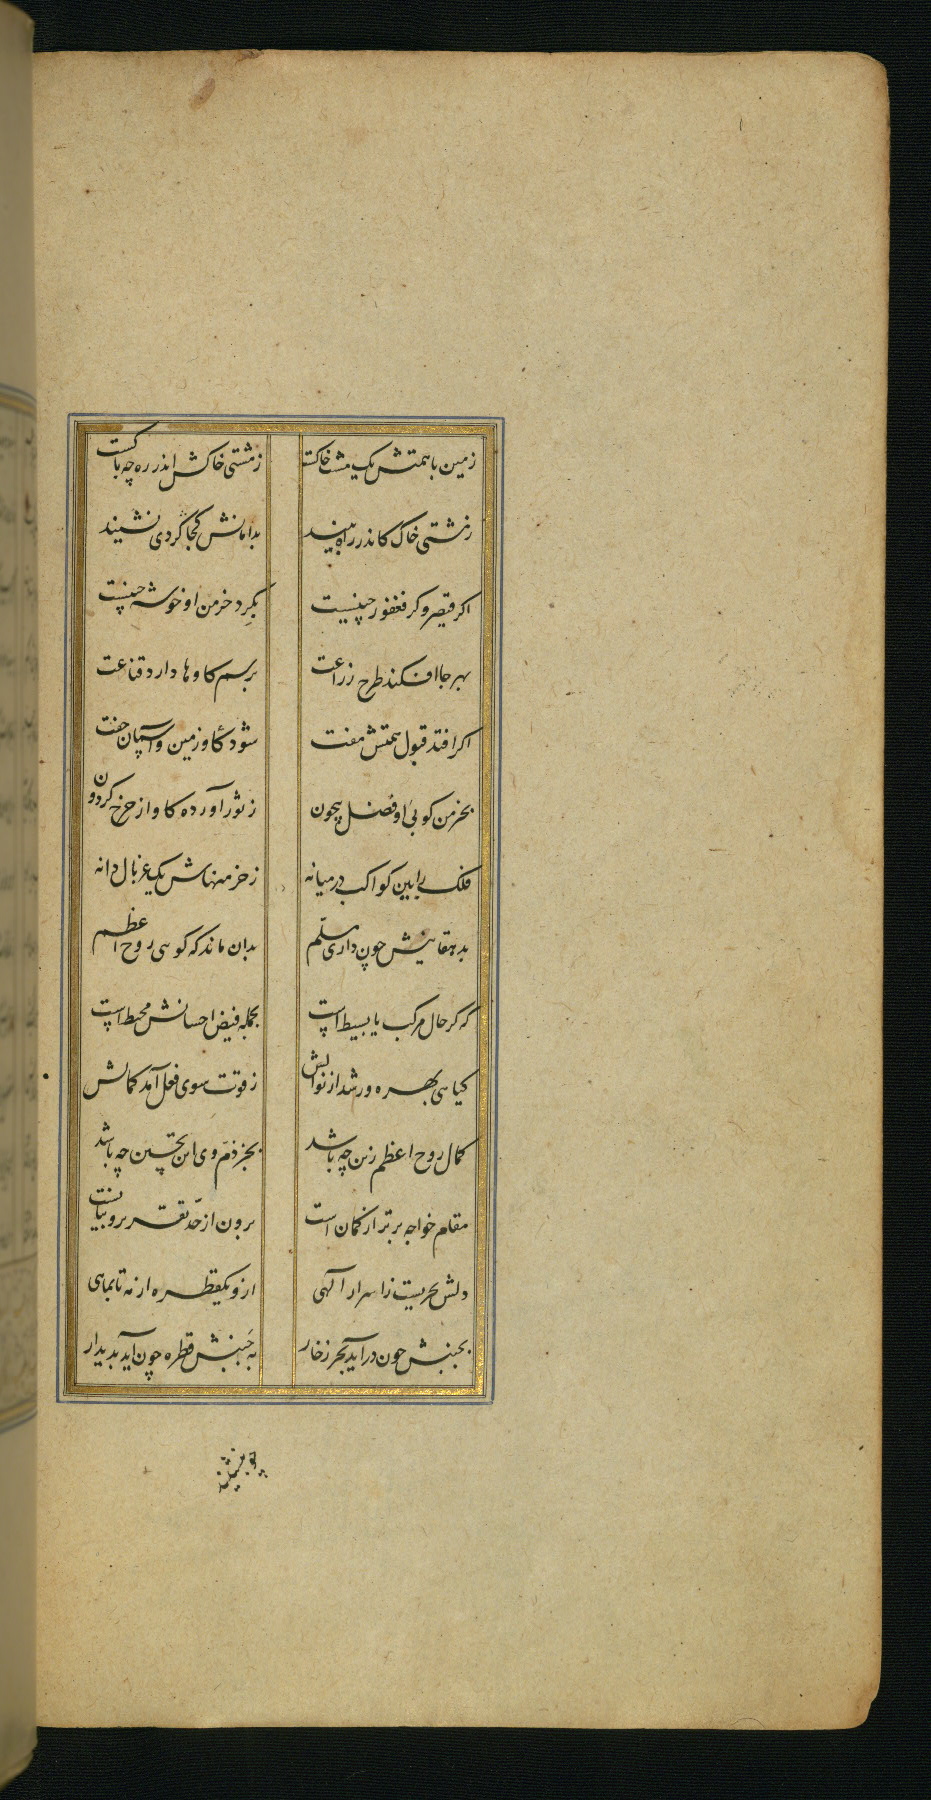 زمین با همتش یک مشت خاکست زمشتی خاکش اندر ره چه باکست
زمشتی خاک کاندر راه بیند بدامانش کجا کردی نشیند
اکر قیصر وکر فغفور چینیست بکرد خرمن او خوشه چینیست
بهر جا افکند طرح زراعت برسم کاوها دارد قناعت
اکر افتد قبول همتش مفت شود کاو زمین و آسمان جفت
بخرمن کوبئ او فضل بیچون زثور آورده کاو از چرخ کردون
فلک با این کواکب در میانه زخرمنهاش یک غربال دانه
بدهقانیش چون داری مسلم بدان ماند که کوهی روح اعظم
که کر حال مرکب یا بسیط است بجمله فیض احسانش محیط است
کیاهی بهره ور شد از نوالش زقوت سوی فعل آمد کمالش
کمال روح اعظم زین چه باشد بجز ذم وی این تحسین چه باشد
مقام خواجه برتر از کمان است برون از حد تقریر و بیانست
دلش بحریست زاسرار آلهی ازو یکقطره از مه تا بماهی
بجنبش چون درآید بحر زخار به جنبش قطره چون آید بدیدار